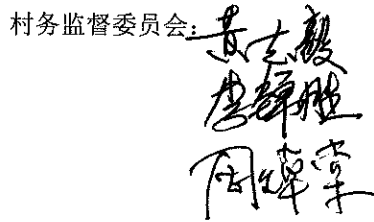 村务监督委员会：黄志毅
李辉胜
周焯棠